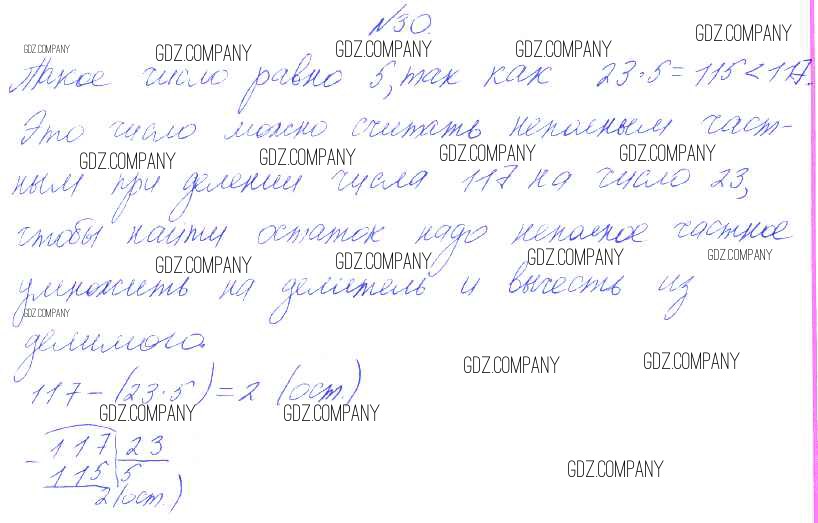 №30.
GDZ.COMPANY GDZ.COMPANY GDZ.COMPANY GDZ.COMPANY GDZ.COMPANY
Такое число равно 5, так как 23·5=115<117.
Это число можно считать неполным част-
GDZ.COMPANY GDZ.COMPANY GDZ.COMPANY GDZ.COMPANY
ным при делении числа 117 на число 23,
чтобы найти остаток надо неполное частное
GDZ.COMPANY GDZ.COMPANY GDZ.COMPANY GDZ.COMPANY
умножить на делитель и вычесть из
GDZ.COMPANY
делимого.
GDZ.COMPANY GDZ.COMPANY
117-(23·5)=2 (ост.)
GDZ.COMPANY GDZ.COMPANY
- 117 23
115 5
GDZ.COMPANY
2(ост.)